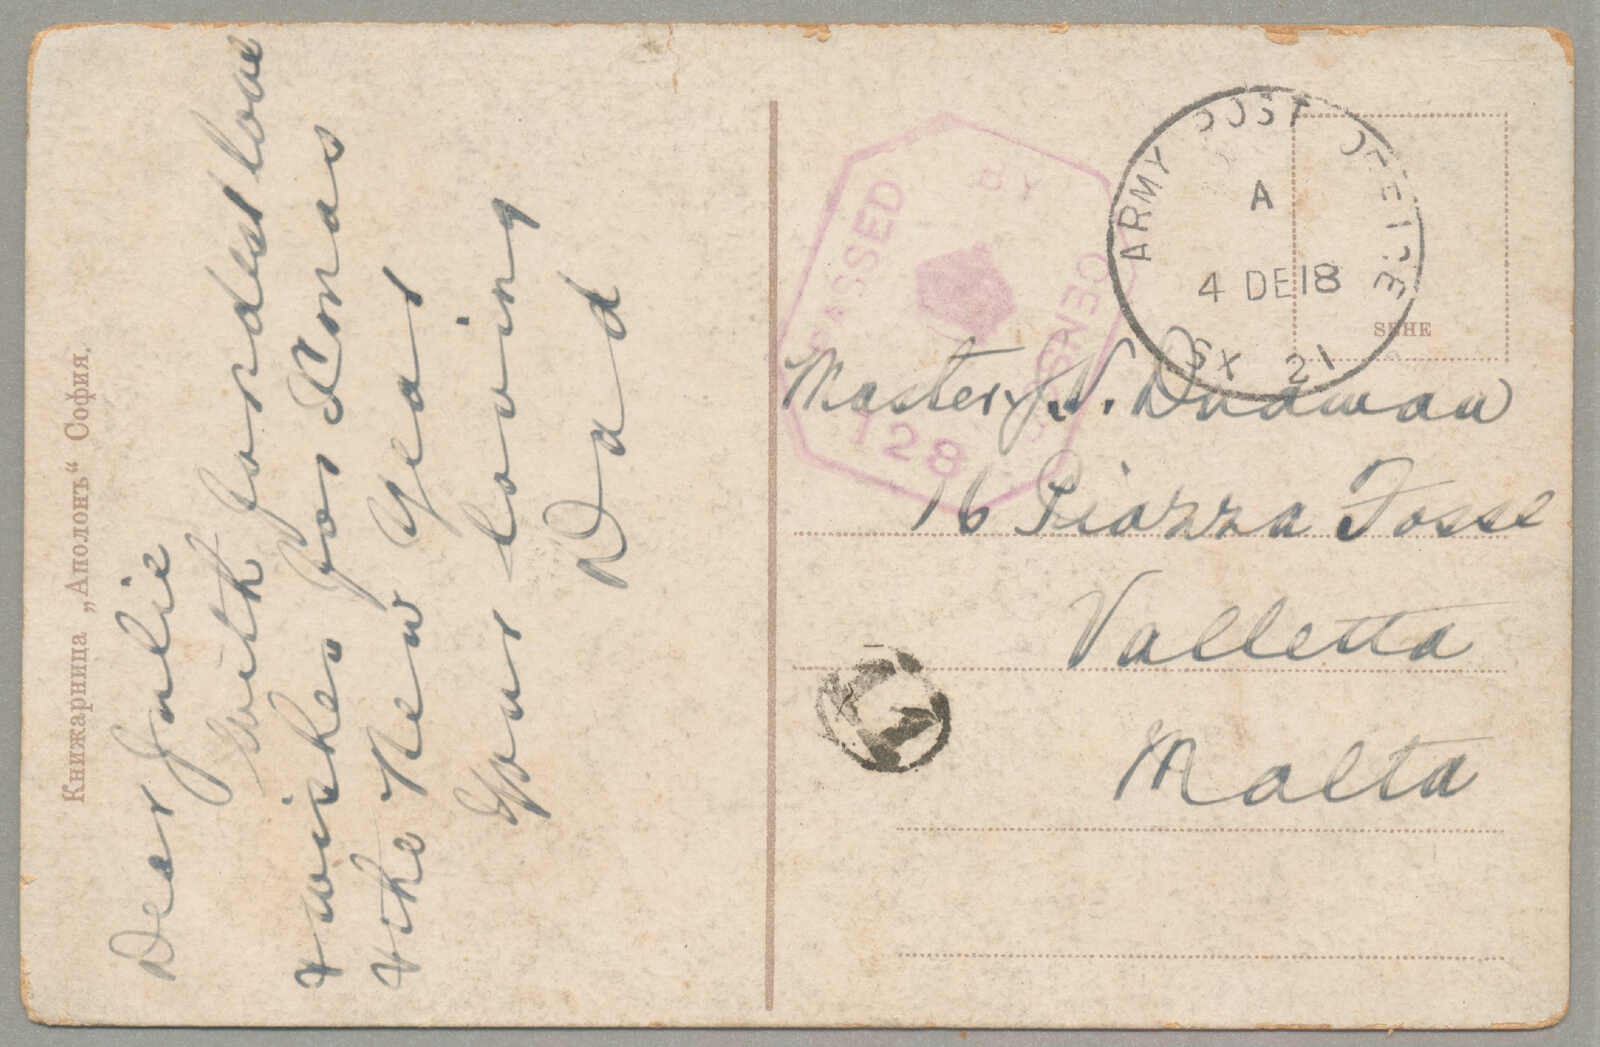 Книжарница „Аполонъ“ София.
Dear Julie
With fondest love
& wishes for Xmas
& the New Year
Your loving
Dad
PASSED BY CENSOR
128
ARMY POST OFFICE
A
4 DE 18
SX 21
SEHE
Master J. Dudman
16 Piazza Fosse
Valletta
Malta